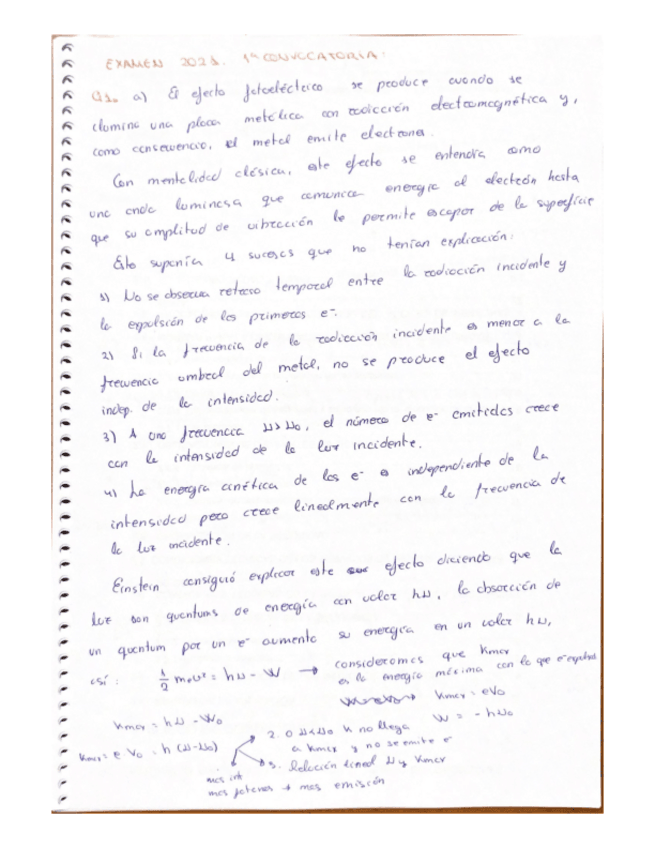 EXAMEN 2021. 1ª CONVOCATORIA:
Q1. a) El efecto fotoeléctrico se produce cuando se
ilumina una placa metálica con radiación electromagnética y,
como consecuencia, el metal emite electrones.
Con mentalidad clásica, este efecto se entendía como
una onda luminosa que comunica energía al electrón hasta
que su amplitud de vibración le permite escapar de la superficie
Esto suponía 4 sucesos que no tenían explicación:
1) No se observa retraso temporal entre la radiación incidente y
la expulsión de los primeros e-.
2) Si la frecuencia de la radiación incidente es menor a la
frecuencia umbral del metal, no se produce el efecto
indep. de la intensidad.
3) A una frecuencia ν>ν₀, el número de e- emitidos crece
con la intensidad de la luz incidente.
4) La energía cinética de los e- es independiente de la
intensidad pero crece linealmente con la frecuencia de
la luz incidente.
Einstein consiguió explicar este efecto diciendo que la
luz son quantums de energía con valor hν, la absorción de
un quantum por un e- aumenta su energía en un valor hν,
así: 1/2 mₑv² = hν - W → consideramos que Kmax
es la energía máxima con la que e- expulsa
Kmax = eV₀
Kmax = hν - W₀ W = - hν₀
Kmax = e V₀ = h (ν-ν₀)
2. 0 ν<ν₀ K no llega
a Kmax y no se emite e-
3. Relación lineal ν y Kmax
mas int
mas fotones → mas emisión